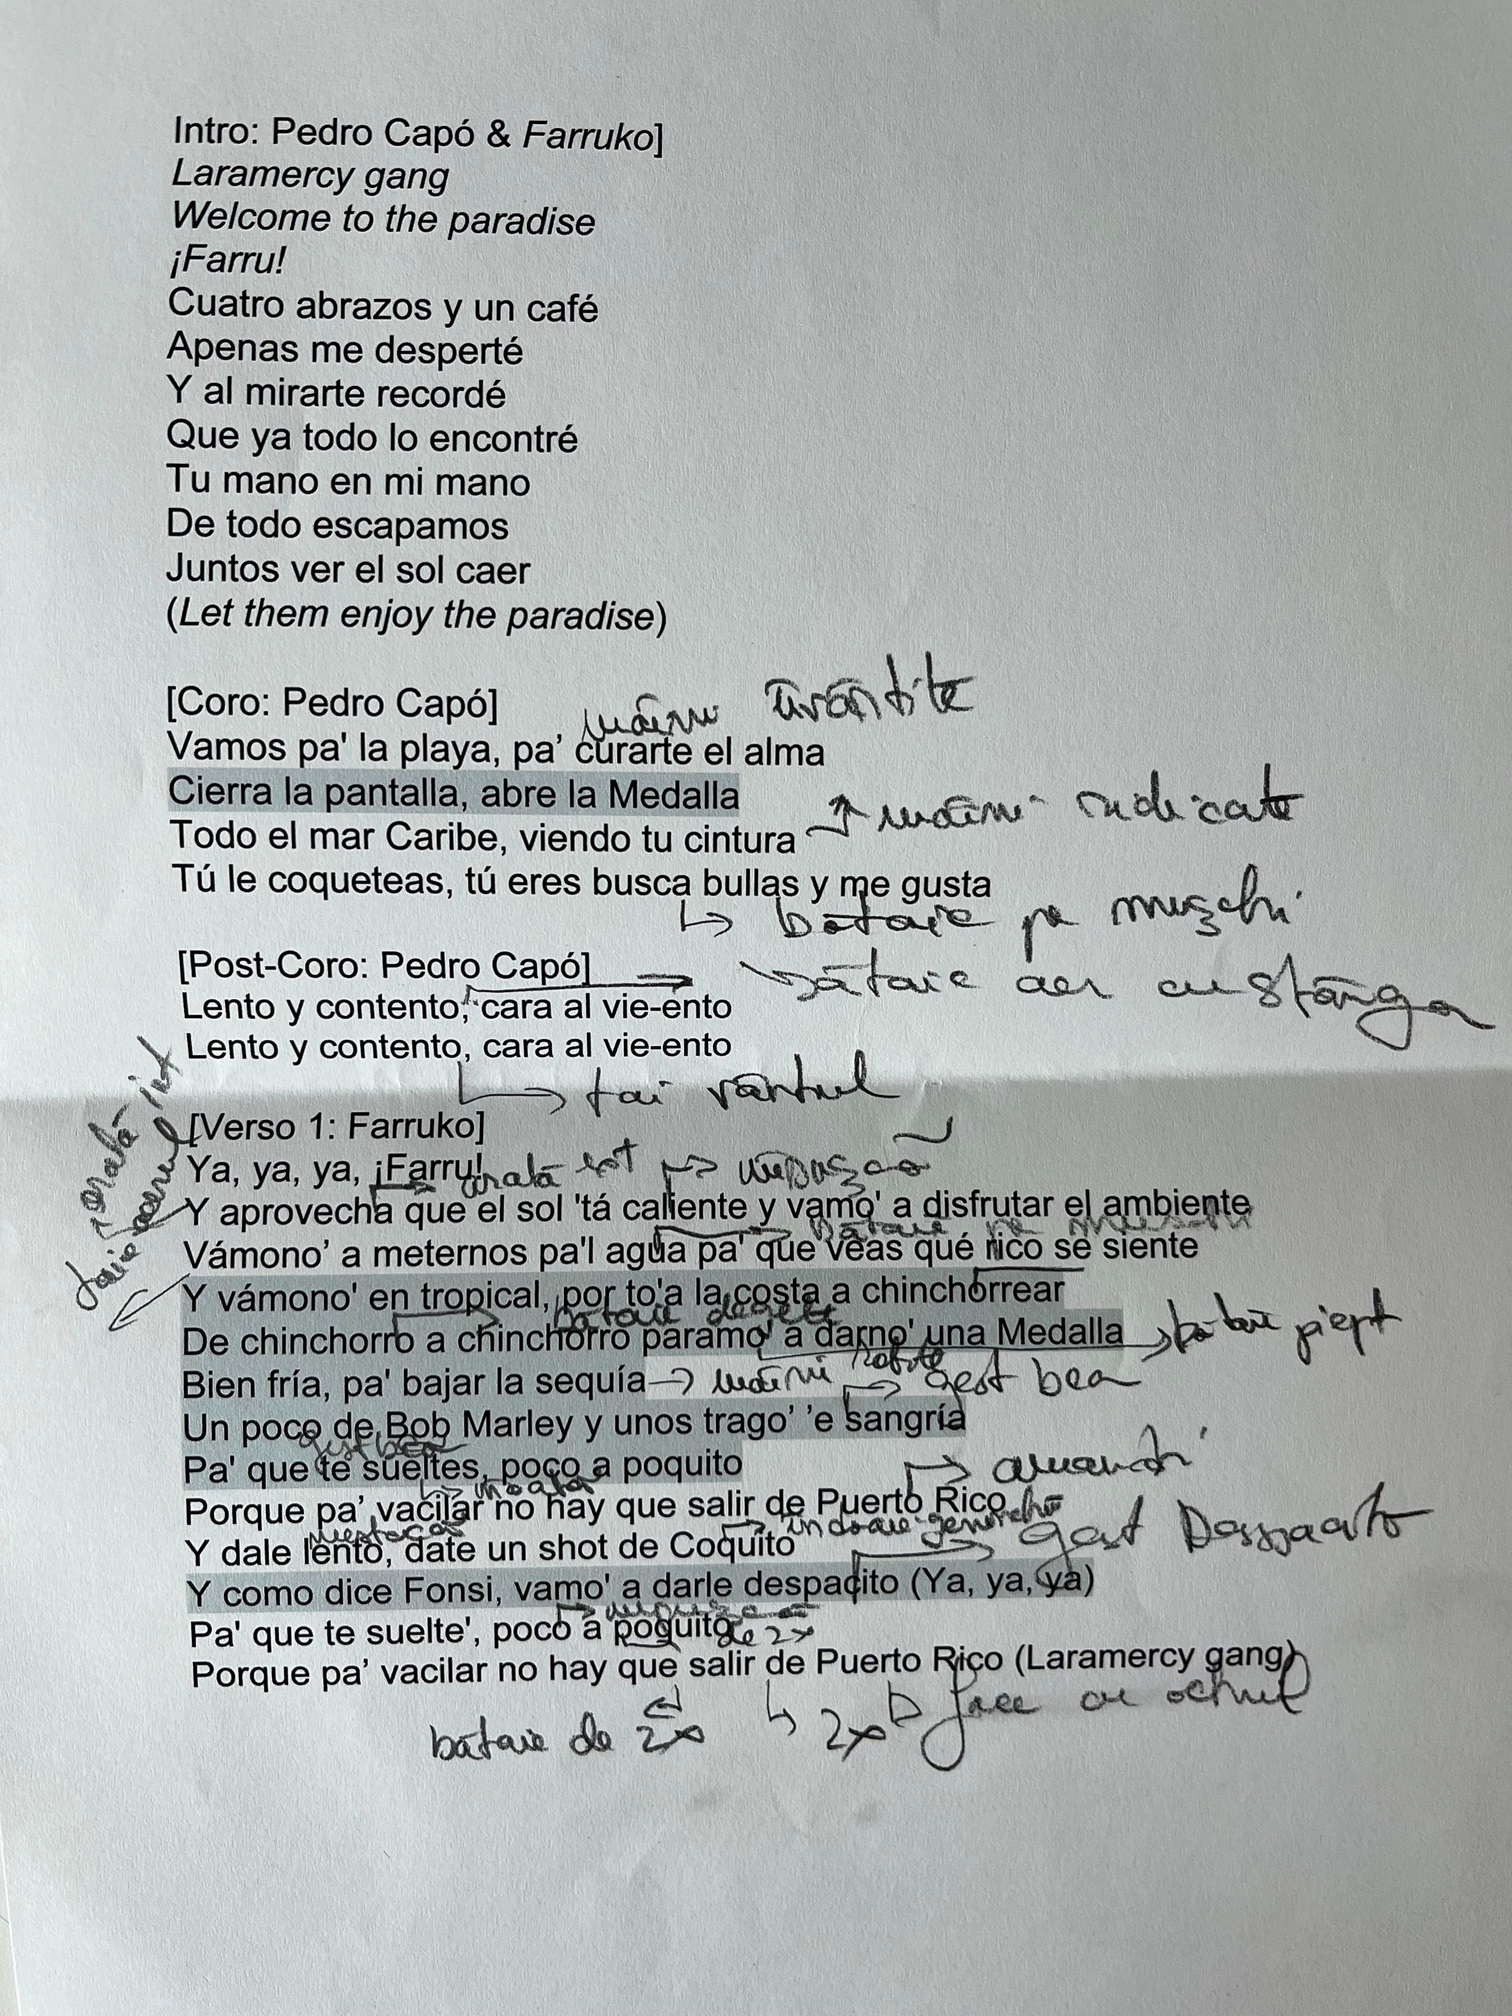 Intro: Pedro Capó & Farruko]
Laramercy gang
Welcome to the paradise
¡Farru!
Cuatro abrazos y un café
Apenas me desperté
Y al mirarte recordé
Que ya todo lo encontré
Tu mano en mi mano
De todo escapamos
Juntos ver el sol caer
(Let them enjoy the paradise)
[Coro: Pedro Capó]
Vamos pa' la playa, pa' curarte el alma
Cierra la pantalla, abre la Medalla
Todo el mar Caribe, viendo tu cintura
mâini ridicate
Tú le coqueteas, tú eres busca bullas y me gusta
bataie pe
[Post-Coro: Pedro Capó]
bătaie aer cu stânga
Lento y contento, cara al vie-ento
Lento y contento, cara al vie-ento
tai vântul
[Verso 1: Farruko]
Ya, ya, ya, ¡Farry!
Y aprovecha que el sol 'tá caliente y vamo' a disfrutar el ambiente
Vámono' a meternos pa'l agua pa' que veas qué rico se siente
Y vámono' en tropical, por to'a la costa a chinchorrear
bataie degete
De chinchorro a chinchorro paramo' a darno' una Medalla
bataie piept
Bien fría, pa' bajar la sequía
mâini
gest bea
Un poco de Bob Marley y unos trago' 'e sangría
gest bea
Pa' que te sueltes, poco a poquito
Porque pa' vacilar no hay que salir de Puerto Rico
Y dale lento, date un shot de Coquito
gest
Y como dice Fonsi, vamo' a darle despacito (Ya, ya, ya)
Pa' que te suelte', poco a poquito
de 2x
Porque pa' vacilar no hay que salir de Puerto Rico (Laramercy gang)
bătaie de 2x
2x
face cu ochiul